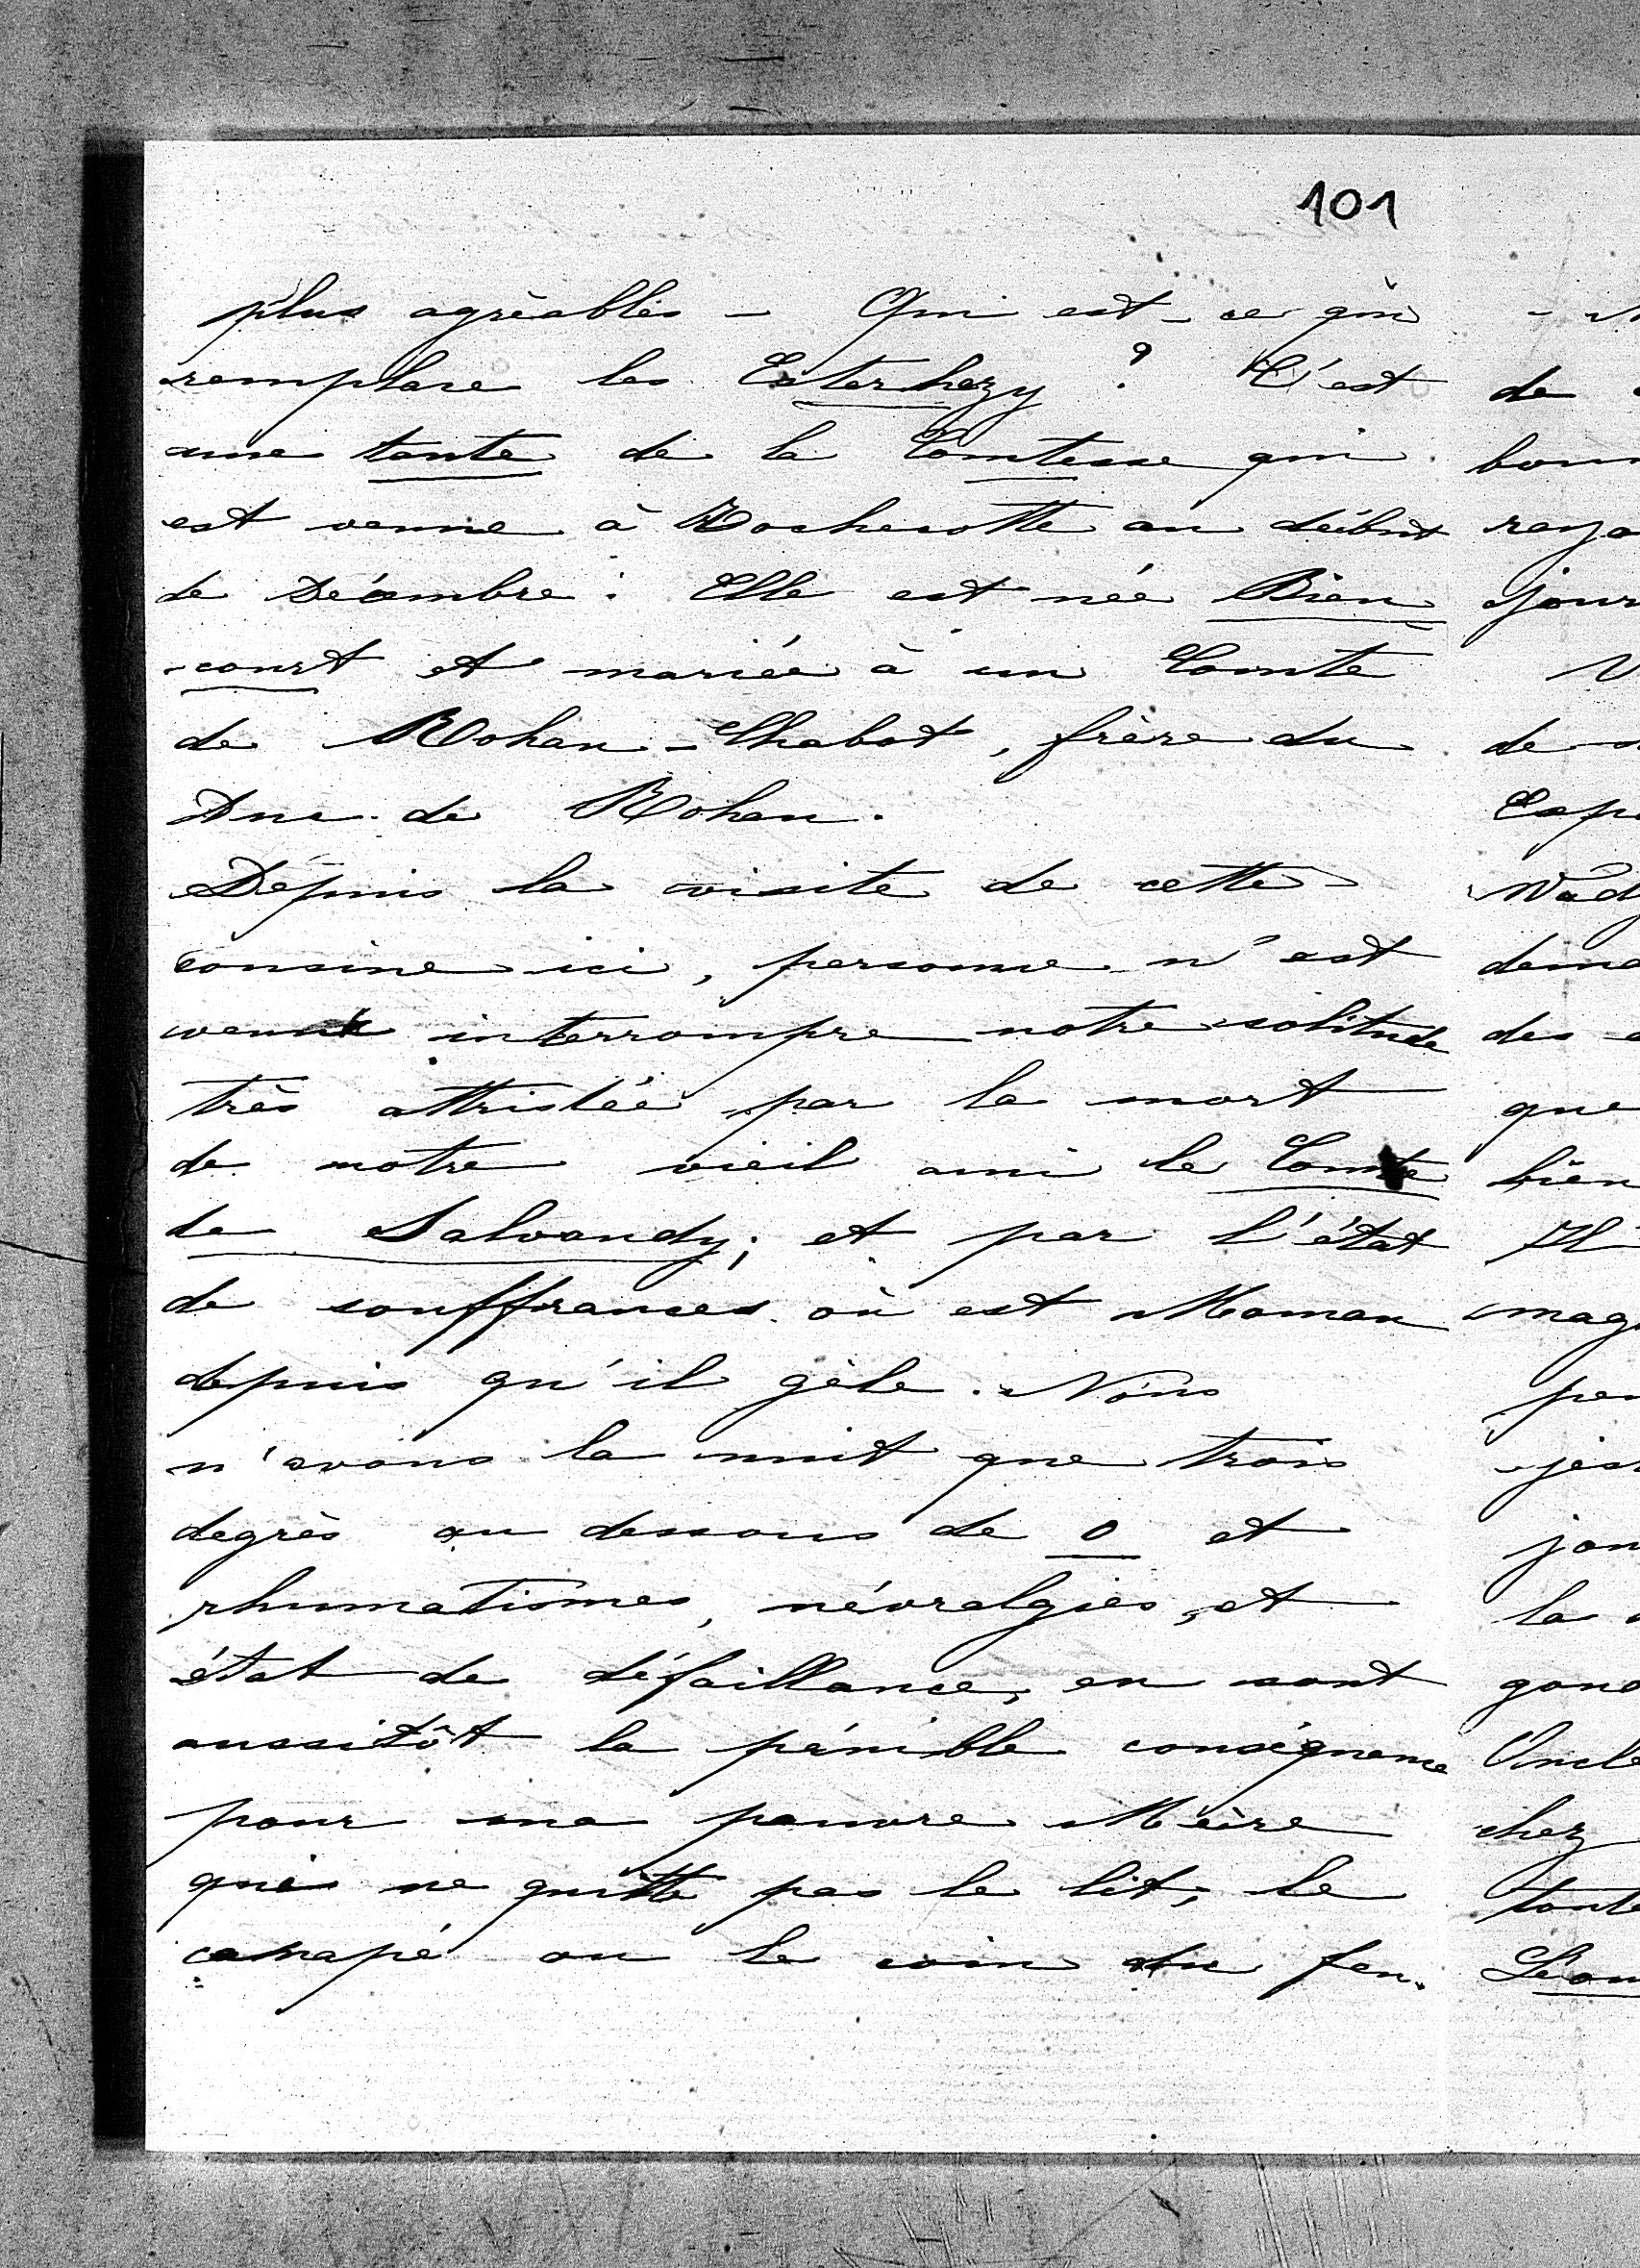 101
plus agréables - Qui est-ce qui
remplace les Esterhezy ? C'est
une tante de la Comtesse qui
est venue à Rochecotte au début
de Décembre : Elle est née Bien
-court et mariée à un Comte
de Rohan-Chabot, frère du
Duc de Rohan.
Depuis la visite de cette
cousine ici, personne n'est
venu interrompre notre solitude
très attristée par la mort
de notre vieil ami le Comte
de Salvandy ; et par l'état
de souffrances où est Maman
depuis qu'il gèle. Nous
n'avons la nuit que trois
degrès au dessous de 0 et
rhumatismes, névralgies, et
état de défaillance, en sont
aussitôt la pénible conséquence
pour ma pauvre Mère
qui ne quitte pas le lit, le
canapé ou le coin du feu.
de
jour
de
des
que
bien
Il
la
Oncle
chez